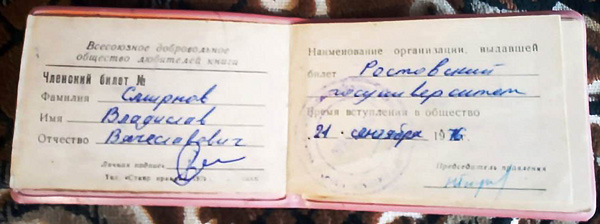 Всесоюзное добровольное
общество любителей книги
Членский билет №
Фамилия Смирнов
Имя Владислав
Отчество Вячеславович
Личная подпись
Наименование организации, выдавшей
билет Ростовский
госуниверситет
Время вступления в общество
21 сентября 1976г.
Председатель правления